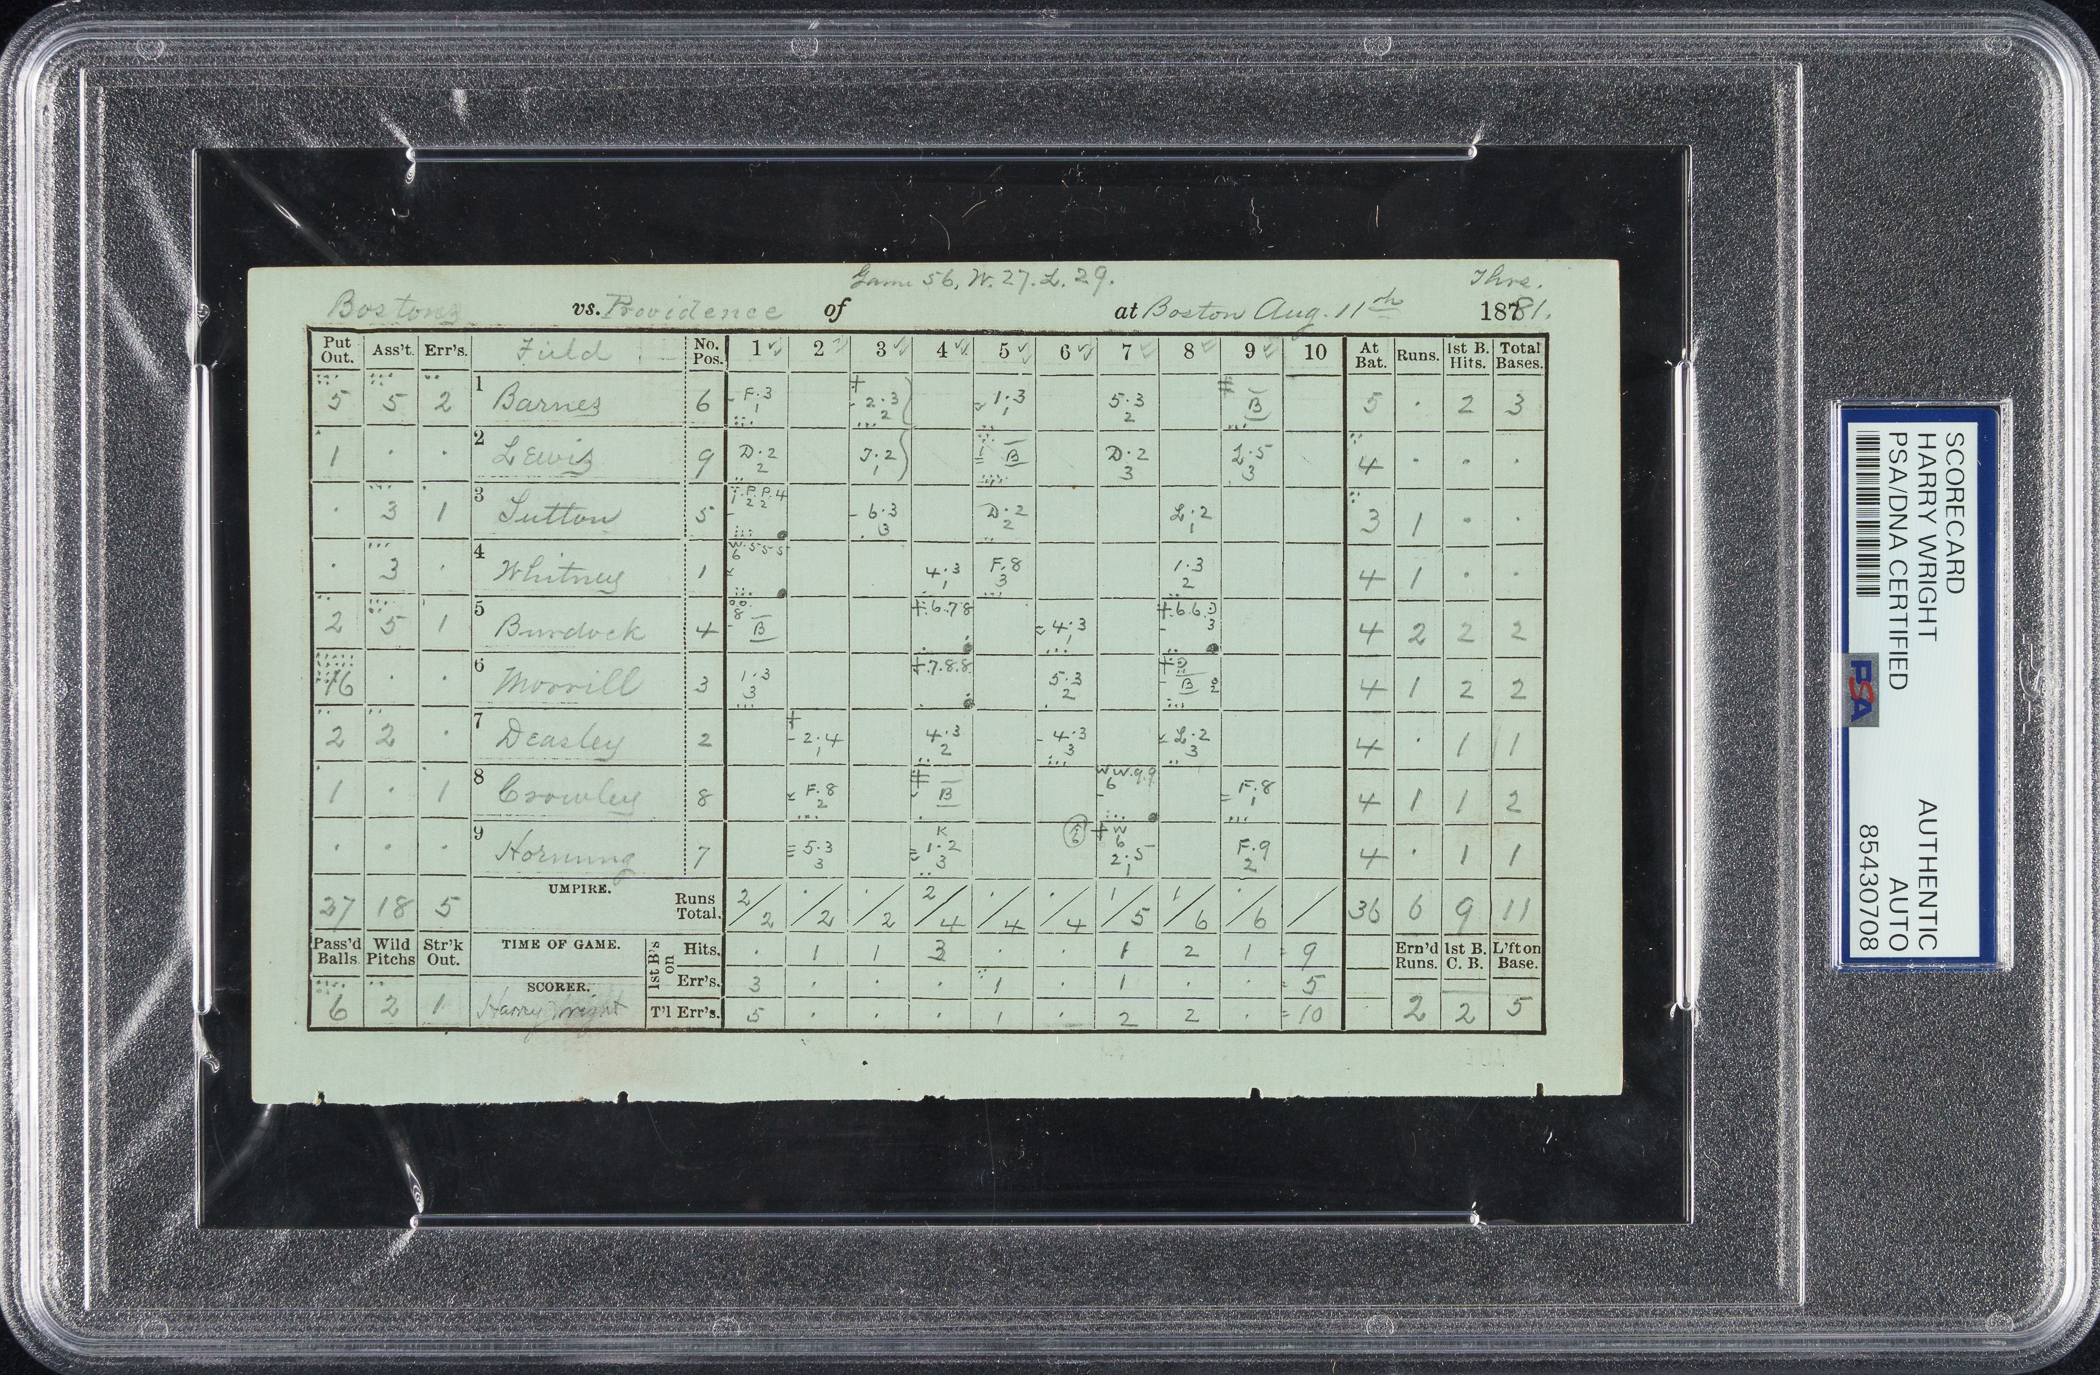 Game 56, W. 27. L. 29. Thrs.
Bostons vs. Providence of at Boston Aug. 11th 1881.
Put Out. Ass't. Err's. Field No. Pos. 1 2 3 4 5 6 7 8 9 10 At Bat. Runs. 1st B. Hits. Total Bases.
5 5 2 1 Barnes 6 F.3 1 2.3 2 1.3 1 5.3 2 B 5 . 2 3
1 . . 2 Lewis 9 D.2 2 J.2 1 B D.2 3 L.5 3 4 . . .
. 3 1 3 Sutton 5 P.P.4 2 2 6.3 3 D.2 2 L.2 1 3 1 . .
. 3 . 4 Whitney 1 W.5 5 5 6 4.3 1 F.8 3 1.3 2 4 1 . .
2 5 1 5 Burdock 4 8 B 6.7 8 4.3 1 6.6 3 3 4 2 2 2
16 . . 6 Morrill 3 1.3 3 7.8.8 5.3 2 B 4 1 2 2
2 2 . 7 Deasley 2 2.4 1 4.3 2 4.3 3 L.2 3 4 . 1 1
1 . 1 8 Crowley 8 F.8 2 B W W.9.9 6 F.8 1 4 1 1 2
. . . 9 Hornung 7 5.3 3 K 1.2 3 W 6 2.5 1 F.9 2 4 . 1 1
27 18 5 UMPIRE. Runs Total. 2/2 ./2 ./2 2/4 ./4 ./4 1/5 1/6 ./6 / 36 6 9 11
Pass'd Balls. Wild Pitchs Str'k Out. TIME OF GAME. 1st B's on Hits. . 1 1 3 . . 1 2 1 = 9 Ern'd Runs. 1st B. C. B. L'ft on Base.
SCORER. Err's. 3 . . . 1 . 1 . . = 5
6 2 1 Harry Wright T'l Err's. 5 . . . 1 . 2 2 . = 10 2 2 5
SCORECARD
HARRY WRIGHT AUTHENTIC
PSA/DNA CERTIFIED AUTO
85430708
PSA